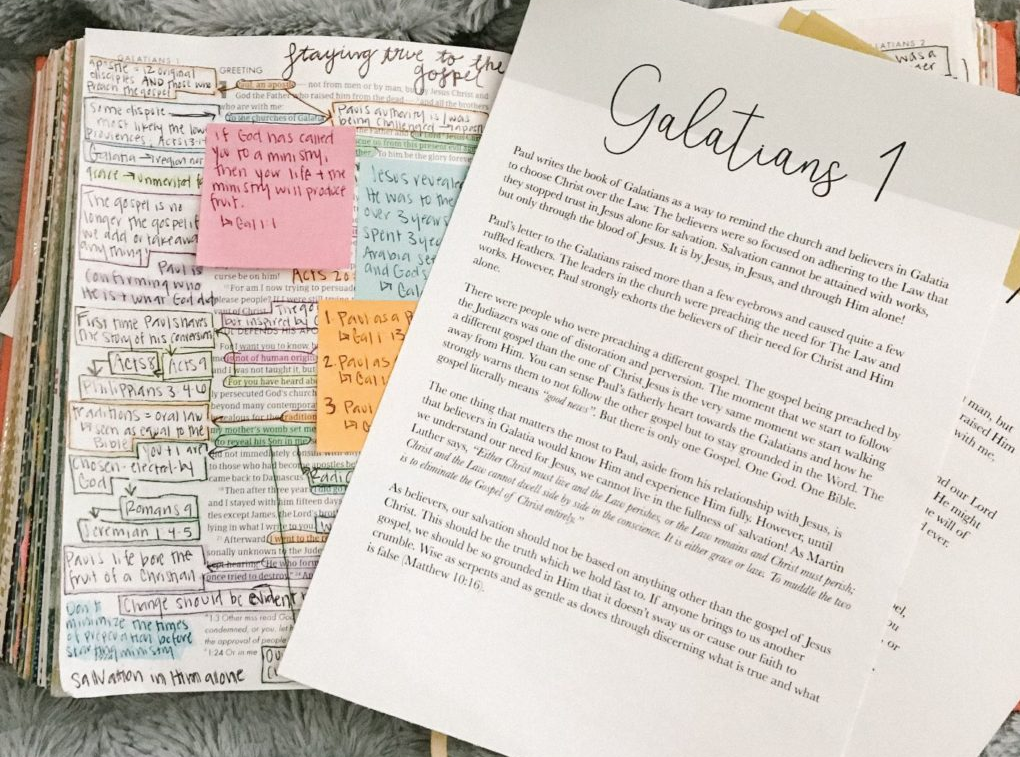 GALATIANS 1
staying true to the
gospel
apostle = 12 original
disciples AND those who
preach the gospel
GREETING
Paul, an apostle — not from men or by man, but by Jesus Christ and
God the Father who raised him from the dead — and all the brothers
who are with me:
To the churches of Galatia
Some dispute
most likely the low
provinces, Acts 13-14
Paul's authority is/was
being challenged
Galatia → region
grace → unmerited
To him be the glory
if God has called
you to a ministry,
then your life + the
ministry will produce
fruit.
↳ Gal 1:1
Jesus
He was to the
over 3 years
spent 3
Arabia
and God's
The gospel is no
longer the gospel if
we add or takeaway
anything!
Paul is
confirming who
He is + what God did
curse be on him!
Acts
For am I now trying to persuade
please people?
but inspired by
First time Paul shares
the story of his conversion
Acts 8
Acts 9
Philippians 3:4-6
For I want you to know,
is not of human origin
and was not taught it, but
For you have heard about
ly persecuted God's church
beyond many contemporaries
1. Paul as a
↳ Gal 1:13
2. Paul as
↳ Gal 1
3 Paul
traditions = oral law
seen as equal to the
Bible
my mother's womb set me
to reveal his Son in me
You + I are
chosen-elected by
God
Romans 9
Jeremiah 1:4-5
did not immediately
to those who had become apostles
came back to Damascus.
Then after three years I did go
and I stayed with him fifteen days
tles except James, the Lord's
lying in what I write to you
Afterward I went to the
sonally unknown to the
kept hearing: He who
once tried to destroy.
Paul's life bore the
fruit of a Christian
Change should be evident
Don't
minimize the times
of preparation before
starting ministry
1:3 Other mss read God
condemned, or you, let
the approval of people
1:24 Or in me
Salvation in Him alone
Galatians 1
Paul writes the book of Galatians as a way to remind the church and believers in Galatia
to choose Christ over the Law. The believers were so focused on adhering to the Law that
they stopped trust in Jesus alone for salvation. Salvation cannot be attained with works,
but only through the blood of Jesus. It is by Jesus, in Jesus, and through Him alone!
Paul's letter to the Galatians raised more than a few eyebrows and caused quite a few
ruffled feathers. The leaders in the church were preaching the need for The Law and
works. However, Paul strongly exhorts the believers of their need for Christ and Him
alone.
There were people who were preaching a different gospel. The gospel being preached by
the Judiazers was one of distoration and perversion. The moment that we start to follow
a different gospel than the one of Christ Jesus is the very same moment we start walking
away from Him. You can sense Paul's fatherly heart towards the Galatians and how he
strongly warns them to not follow the other gospel but to stay grounded in the Word. The
gospel literally means "good news". But there is only one Gospel. One God. One Bible.
The one thing that matters the most to Paul, aside from his relationship with Jesus, is
that believers in Galatia would know Him and experience Him fully. However, until
understand our need for Jesus, we cannot live in the fullness of salvation! As Martin
Luther says, "Either Christ must live and the Law perishes, or the Law remains and Christ must perish;
Christ and the Law cannot dwell side by side in the conscience. It is either grace or law. To muddle the two
is to eliminate the Gospel of Christ entirely."
As believers, our salvation should not be based on anything other than the gospel of Jesus
Christ. This should be the truth which we hold fast to. If anyone brings to us another
gospel, we should be so grounded in Him that it doesn't sway us or cause our faith to
crumble. Wise as serpents and as gentle as doves through discerning what is true and what
is false (Matthew 10:16).
GALATIANS 2
was a
man, but
raised Him
with me,
our Lord
He might
will of
ever.
or